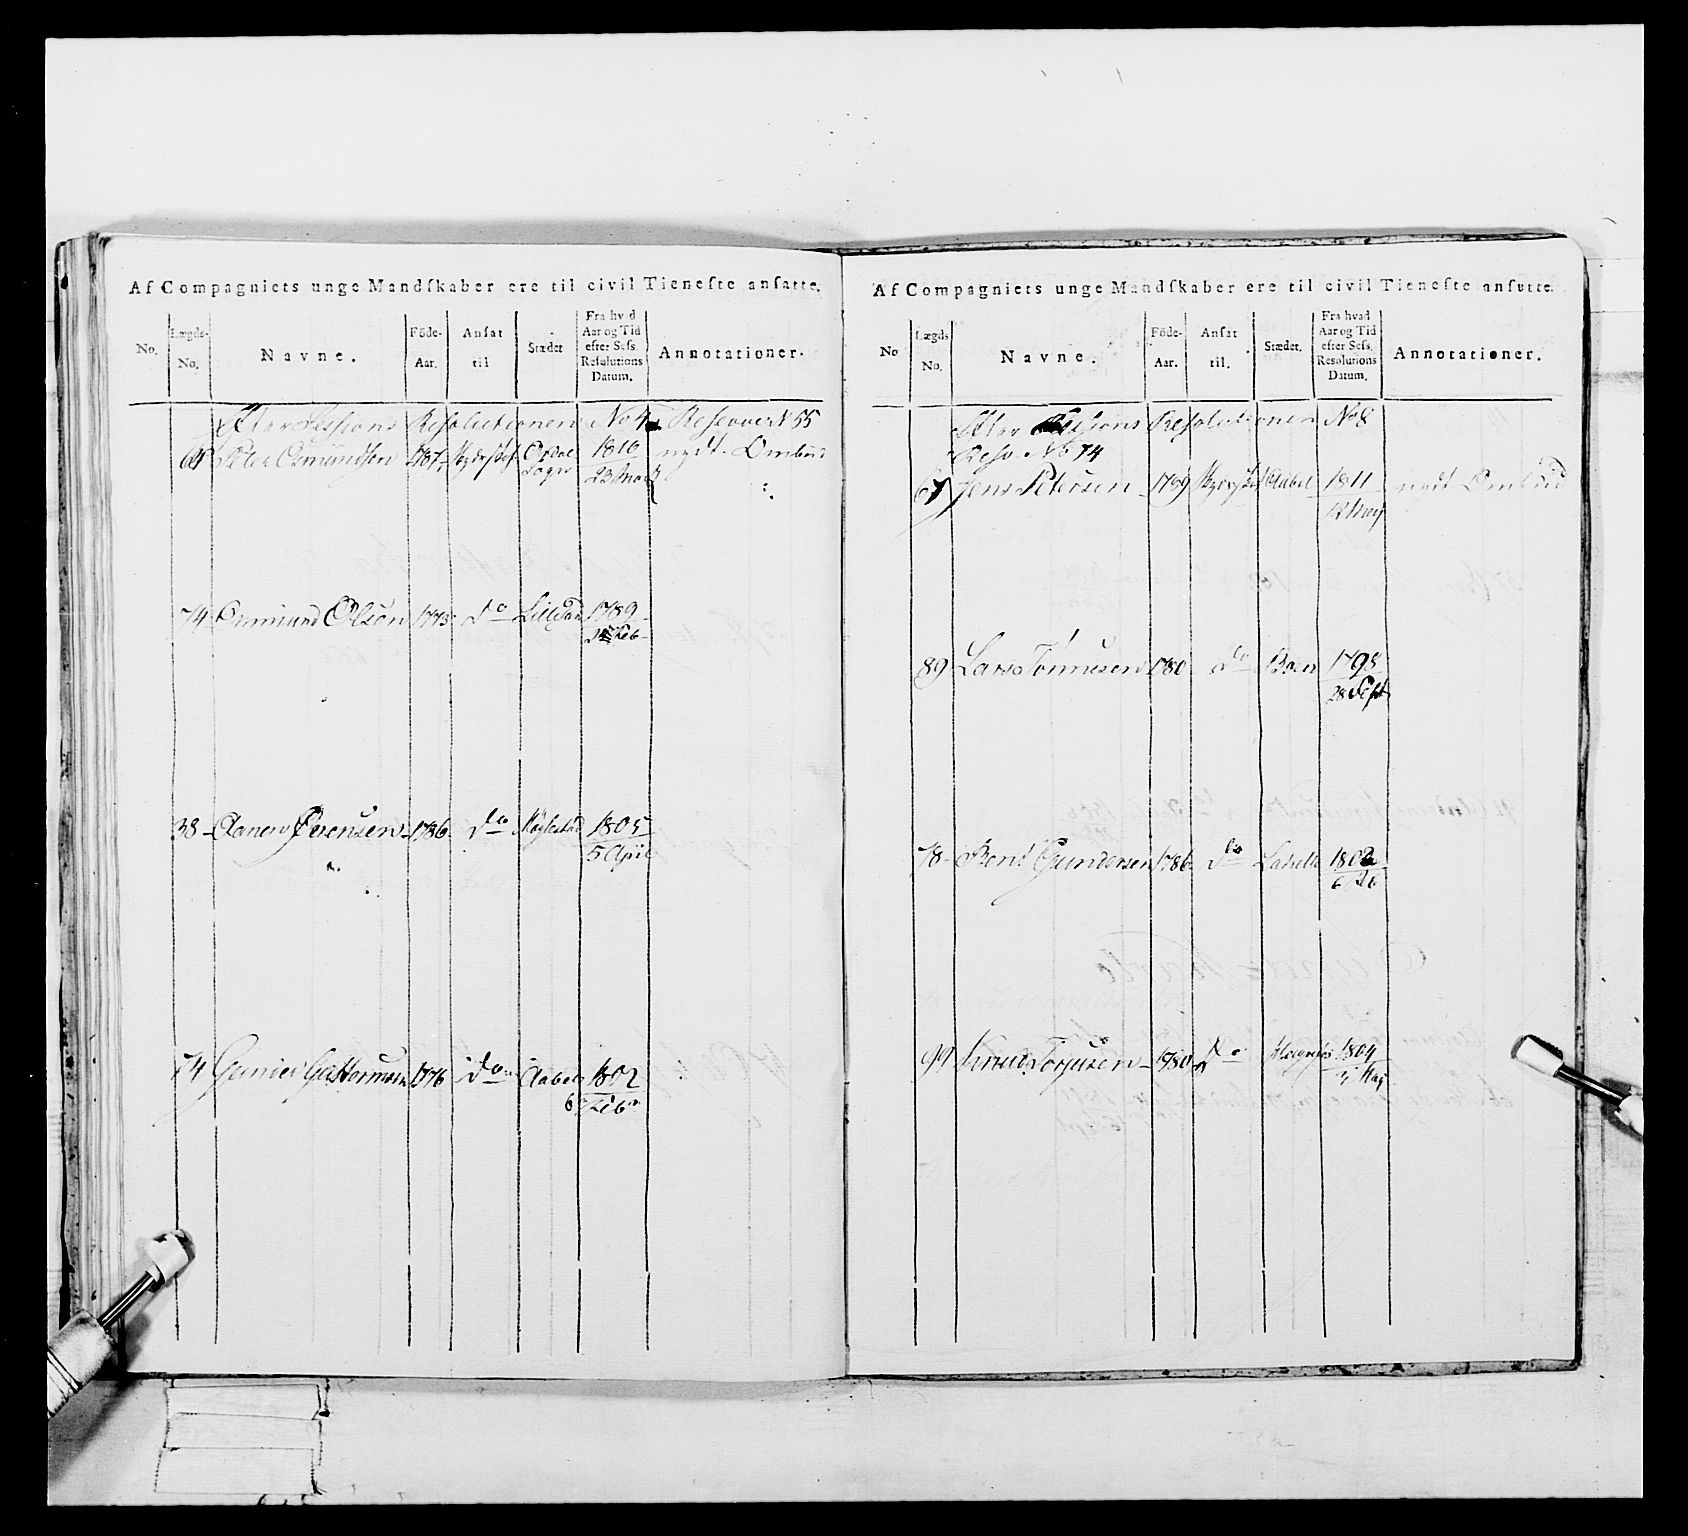 Af Compagniets unge Mandſkaber ere til civil Tieneſte anſatte.
No. Lægds-No. Navne. Föde-Aar. Anſat til Stædet Fra hvad Aar og Tid efter Sesſ. Reſolutions Datum. Annotationer.
Efter Sessions Resolutionen No 4 Reserver No 55
Peter Osmundsen 1787 1810 nydt Ombud
Sogn 23 Mai
74 Ommund Olsen 1773 do Lillesan 1789
Feb
38 Aanen Sørensen 1786 do Møglestad 1805
5 April
74 Gunder Guttormsen 1776 do Aabel 1802
6 Feb
Af Compagniets unge Mandſkaber ere til civil Tieneſte anſatte.
No Lægds No. Navne. Föde-Aar. Anſat til. Stædet. Fra hvad Aar og Tid efter Sesſ. Reſolutions Datum. Annotationer.
Efter Sessions Resolutionen No 8
Resv. No 74
67 Jens Petersen 1789 Aabel 1811 nydt Ombud
12 May
89 Lars Tönnesen 1780 do Boen 1798
28 Sept
78 Bent Gundersen 1786 do 1802
6 Feb
99 Knud Torjusen 1780 do 1804
May